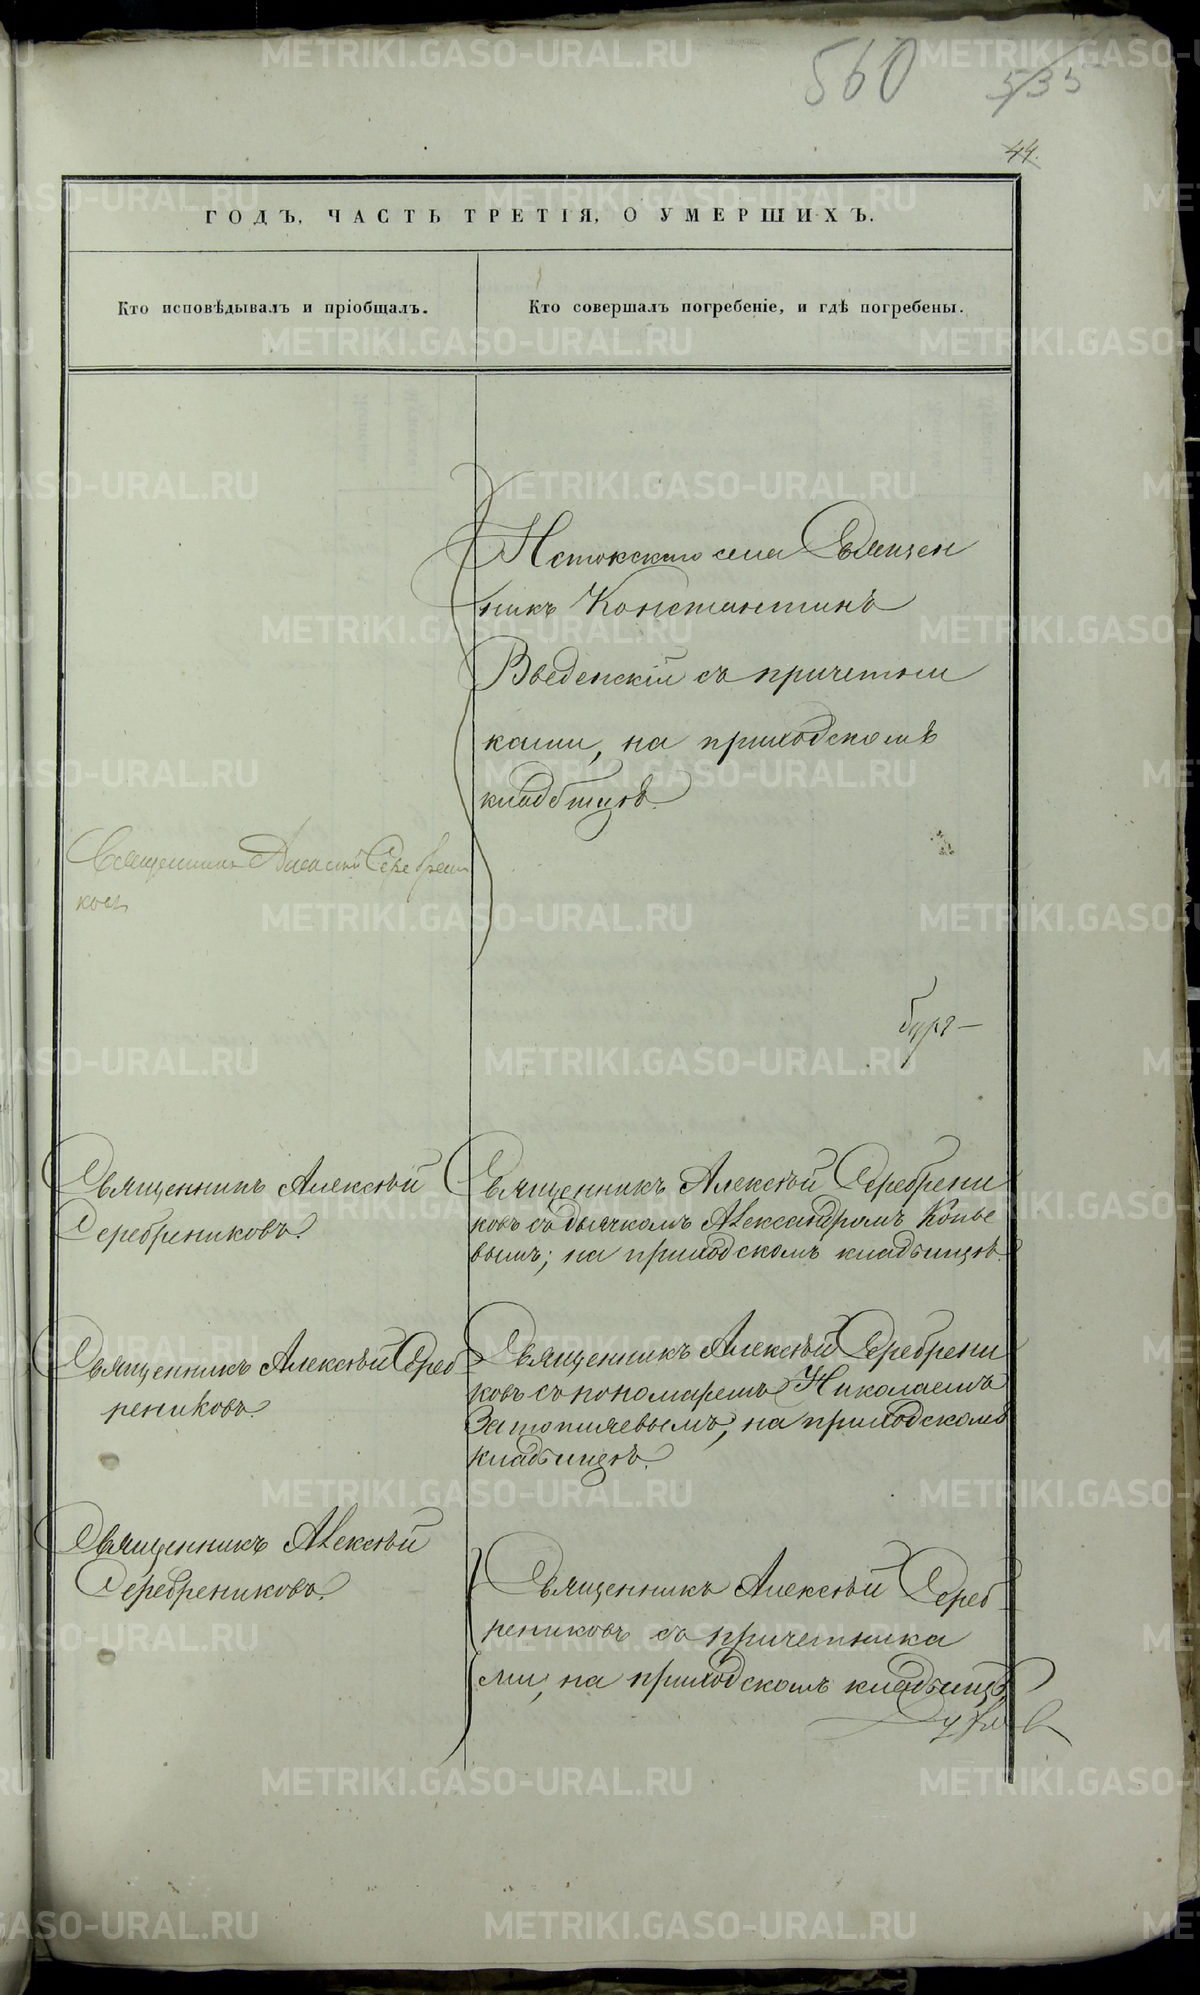 560 535
44.
ГОДЪ, ЧАСТЬ ТРЕТІЯ, О УМЕРШИХЪ.
Кто исповѣдывалъ и пріобщалъ.
Кто совершалъ погребеніе, и гдѣ погребены.
Истокскаго села Священ
никъ Константинъ
Введенскій съ причетни
ками, на приходскомъ
кладбищѣ.
Священникъ Алексѣй Серебрени
ковъ
Священникъ Алексѣй
Серебрениковъ.
Священникъ Алексѣй Серебрени
ковъ съ дьячкомъ Александромъ Копье
вымъ; на приходскомъ кладбищѣ.
Священникъ Алексѣй Сереб
рениковъ.
Священникъ Алексѣй Серебрени
ковъ съ пономаремъ Николаемъ
Затопляевымъ, на приходскомъ
кладбищѣ.
Священникъ Алексѣй
Серебрениковъ.
Священникъ Алексѣй Сереб
рениковъ съ причетника
ми, на приходскомъ кладбищѣ
METRIKI.GASO-URAL.RU